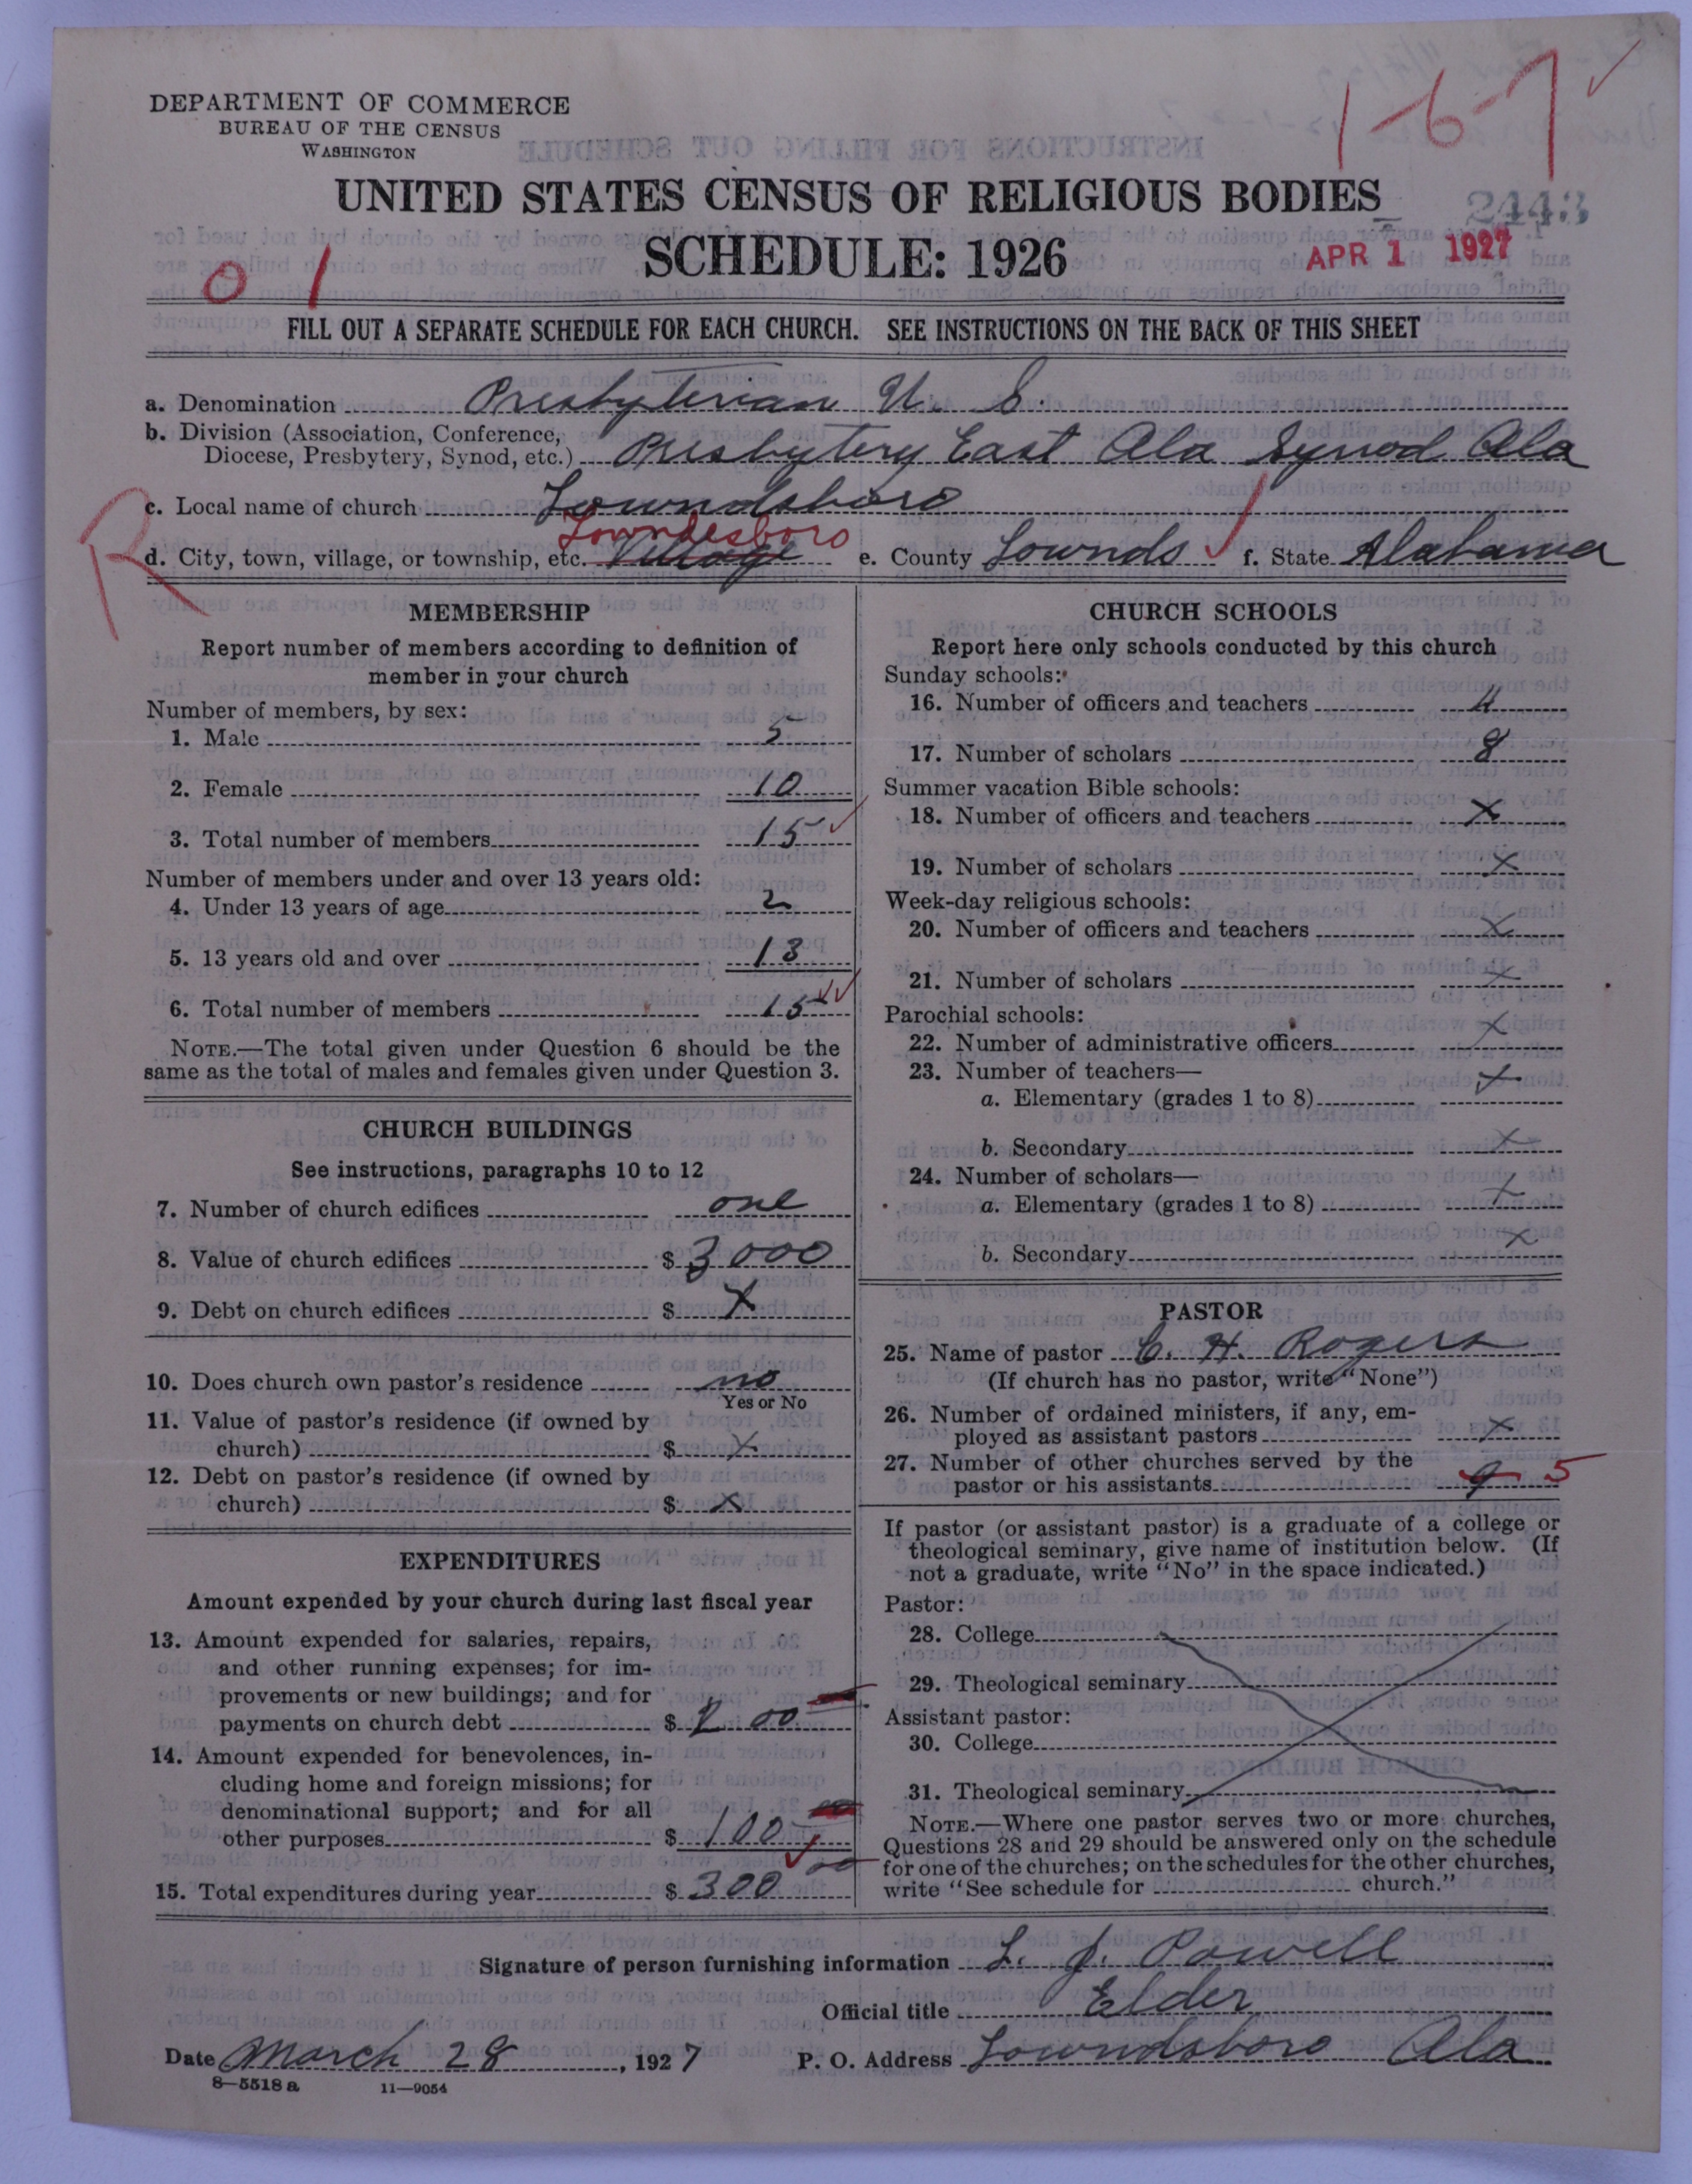 1-6-7 ✓
DEPARTMENT OF COMMERCE
BUREAU OF THE CENSUS
WASHINGTON
UNITED STATES CENSUS OF RELIGIOUS BODIES
2443
SCHEDULE: 1926
APR 1 1927
0 1
FILL OUT A SEPARATE SCHEDULE FOR EACH CHURCH. SEE INSTRUCTIONS ON THE BACK OF THIS SHEET
a. Denomination Presbyterian U. S.
b. Division (Association, Conference,
Diocese, Presbytery, Synod, etc.) Presbytery East Ala Synod Ala
R
c. Local name of church Lowndsboro
Lowndesboro
d. City, town, village, or township, etc. Village e. County Lownds ✓ f. State Alabama
MEMBERSHIP
Report number of members according to definition of
member in your church
Number of members, by sex:
1. Male 5
2. Female 10
3. Total number of members 15 ✓
Number of members under and over 13 years old:
4. Under 13 years of age 2
5. 13 years old and over 13
6. Total number of members 15 ✓✓
NOTE.—The total given under Question 6 should be the
same as the total of males and females given under Question 3.
CHURCH BUILDINGS
See instructions, paragraphs 10 to 12
7. Number of church edifices one
8. Value of church edifices $ 3000
9. Debt on church edifices $ X
10. Does church own pastor's residence no
Yes or No
11. Value of pastor's residence (if owned by
church) $ X
12. Debt on pastor's residence (if owned by
church) $ X
EXPENDITURES
Amount expended by your church during last fiscal year
13. Amount expended for salaries, repairs,
and other running expenses; for im-
provements or new buildings; and for
payments on church debt $ 200
14. Amount expended for benevolences, in-
cluding home and foreign missions; for
denominational support; and for all
other purposes $ 100
15. Total expenditures during year $ 300
CHURCH SCHOOLS
Report here only schools conducted by this church
Sunday schools:
16. Number of officers and teachers 4
17. Number of scholars 8
Summer vacation Bible schools:
18. Number of officers and teachers X
19. Number of scholars X
Week-day religious schools:
20. Number of officers and teachers X
21. Number of scholars X
Parochial schools:
22. Number of administrative officers X
23. Number of teachers—
a. Elementary (grades 1 to 8) X
b. Secondary X
24. Number of scholars—
a. Elementary (grades 1 to 8) X
b. Secondary X
PASTOR
25. Name of pastor C. H. Rogers
(If church has no pastor, write "None")
26. Number of ordained ministers, if any, em-
ployed as assistant pastors X
27. Number of other churches served by the
pastor or his assistants 9 5
If pastor (or assistant pastor) is a graduate of a college or
theological seminary, give name of institution below. (If
not a graduate, write "No" in the space indicated.)
Pastor:
28. College
29. Theological seminary
Assistant pastor:
30. College
31. Theological seminary
NOTE.—Where one pastor serves two or more churches,
Questions 28 and 29 should be answered only on the schedule
for one of the churches; on the schedules for the other churches,
write "See schedule for church."
Signature of person furnishing information L. J. Powell
Official title Elder
Date March 28, 1927 P. O. Address Lowndsboro Ala
8—5518 a 11—9054